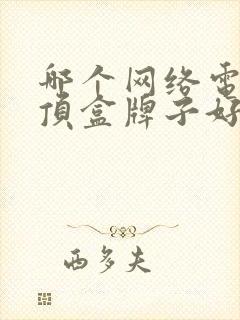 哪个网络電
頂盒牌子好
西多夫